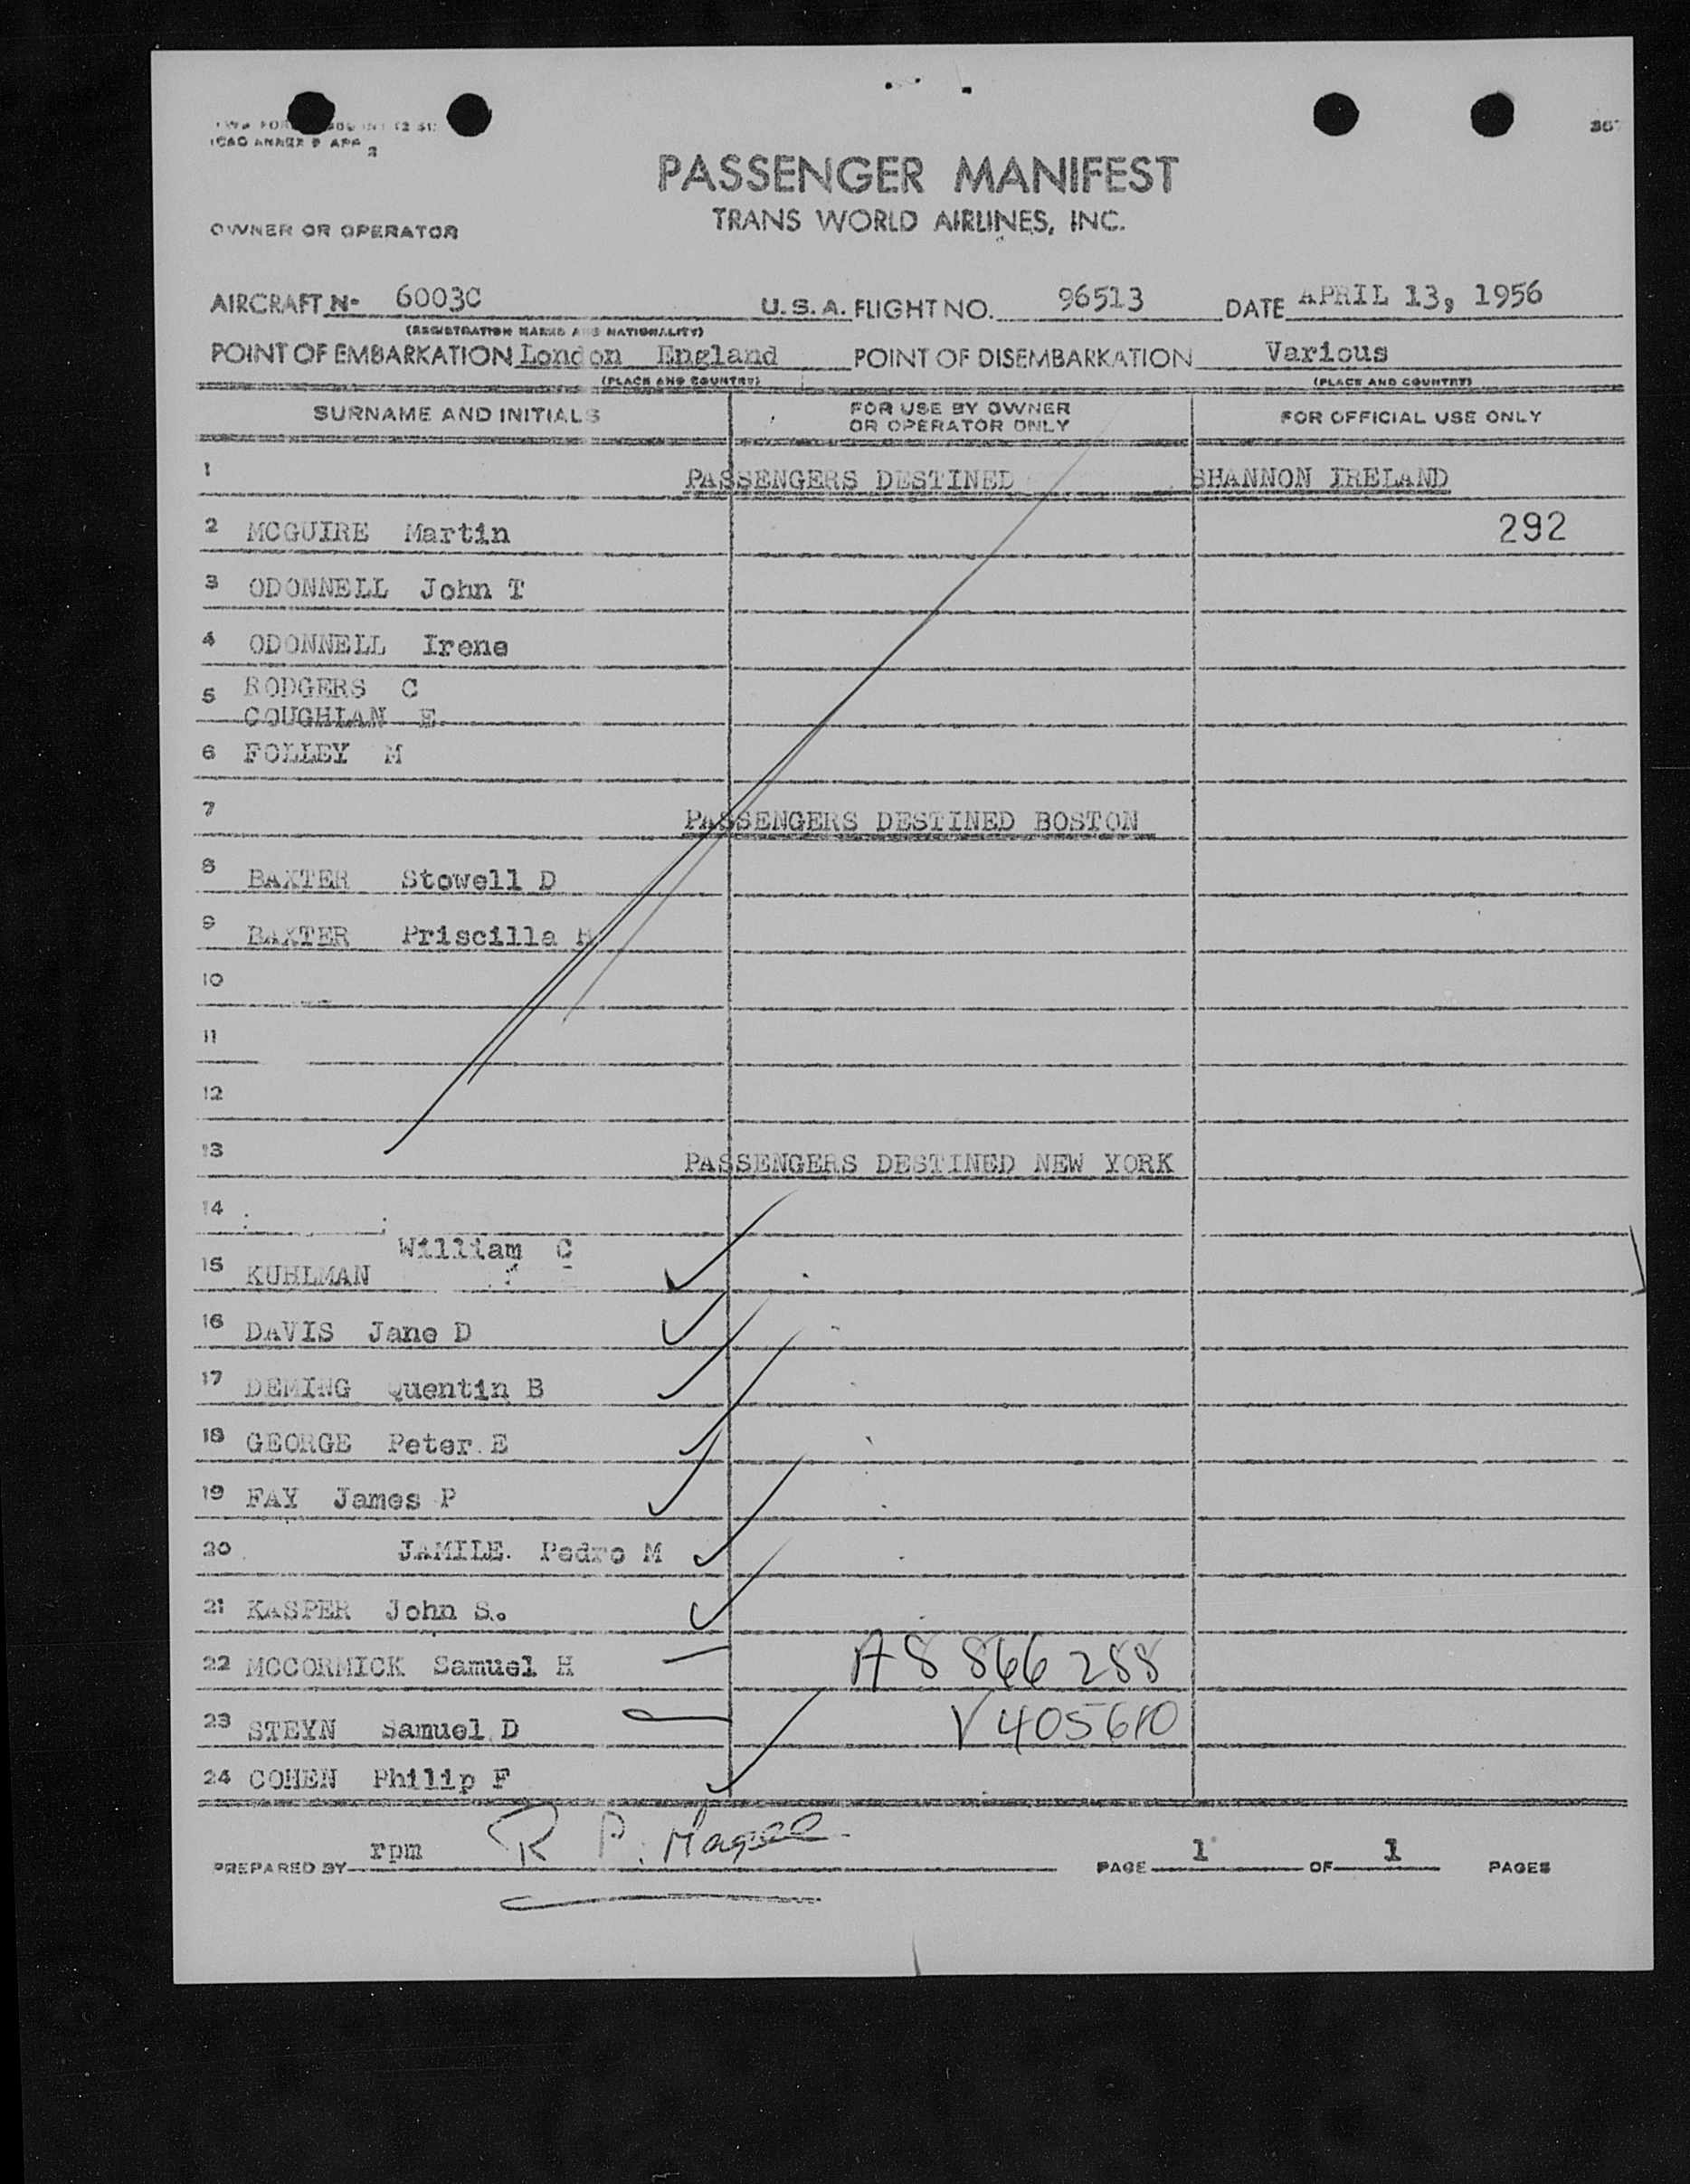 ICAO ANNEX 9 APP 2
PASSENGER MANIFEST
TRANS WORLD AIRLINES, INC.
OWNER OR OPERATOR
AIRCRAFT N- 6003C U.S.A. FLIGHT NO. 96513 DATE APRIL 13, 1956
(REGISTRATION MARKS AND NATIONALITY)
POINT OF EMBARKATION London England POINT OF DISEMBARKATION Various
(PLACE AND COUNTRY) (PLACE AND COUNTRY)
SURNAME AND INITIALS FOR USE BY OWNER OR OPERATOR ONLY FOR OFFICIAL USE ONLY
1 PASSENGERS DESTINED SHANNON IRELAND
2 MCGUIRE Martin 292
3 ODONNELL John T
4 ODONNELL Irene
5 RODGERS C
COUGHLAN E
6 FOLLEY M
7 PASSENGERS DESTINED BOSTON
8 BAXTER Stowell D
9 BAXTER Priscilla H
10
11
12
13 PASSENGERS DESTINED NEW YORK
14
William C
15 KUHLMAN
16 DAVIS Jane D
17 DEMING Quentin B
18 GEORGE Peter E
19 FAY James P
20 JAMILE. Pedro M
21 KASPER John S.
22 MCCORMICK Samuel H A8 866 288
23 STEYN Samuel D V 405610
24 COHEN Philip F
PREPARED BY rpm R P. Magee PAGE 1 OF 1 PAGES